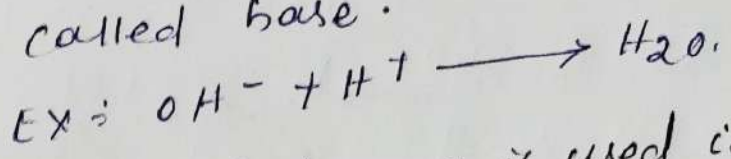 called base.
Ex: OH⁻ + H⁺ ⟶ H2O.
used